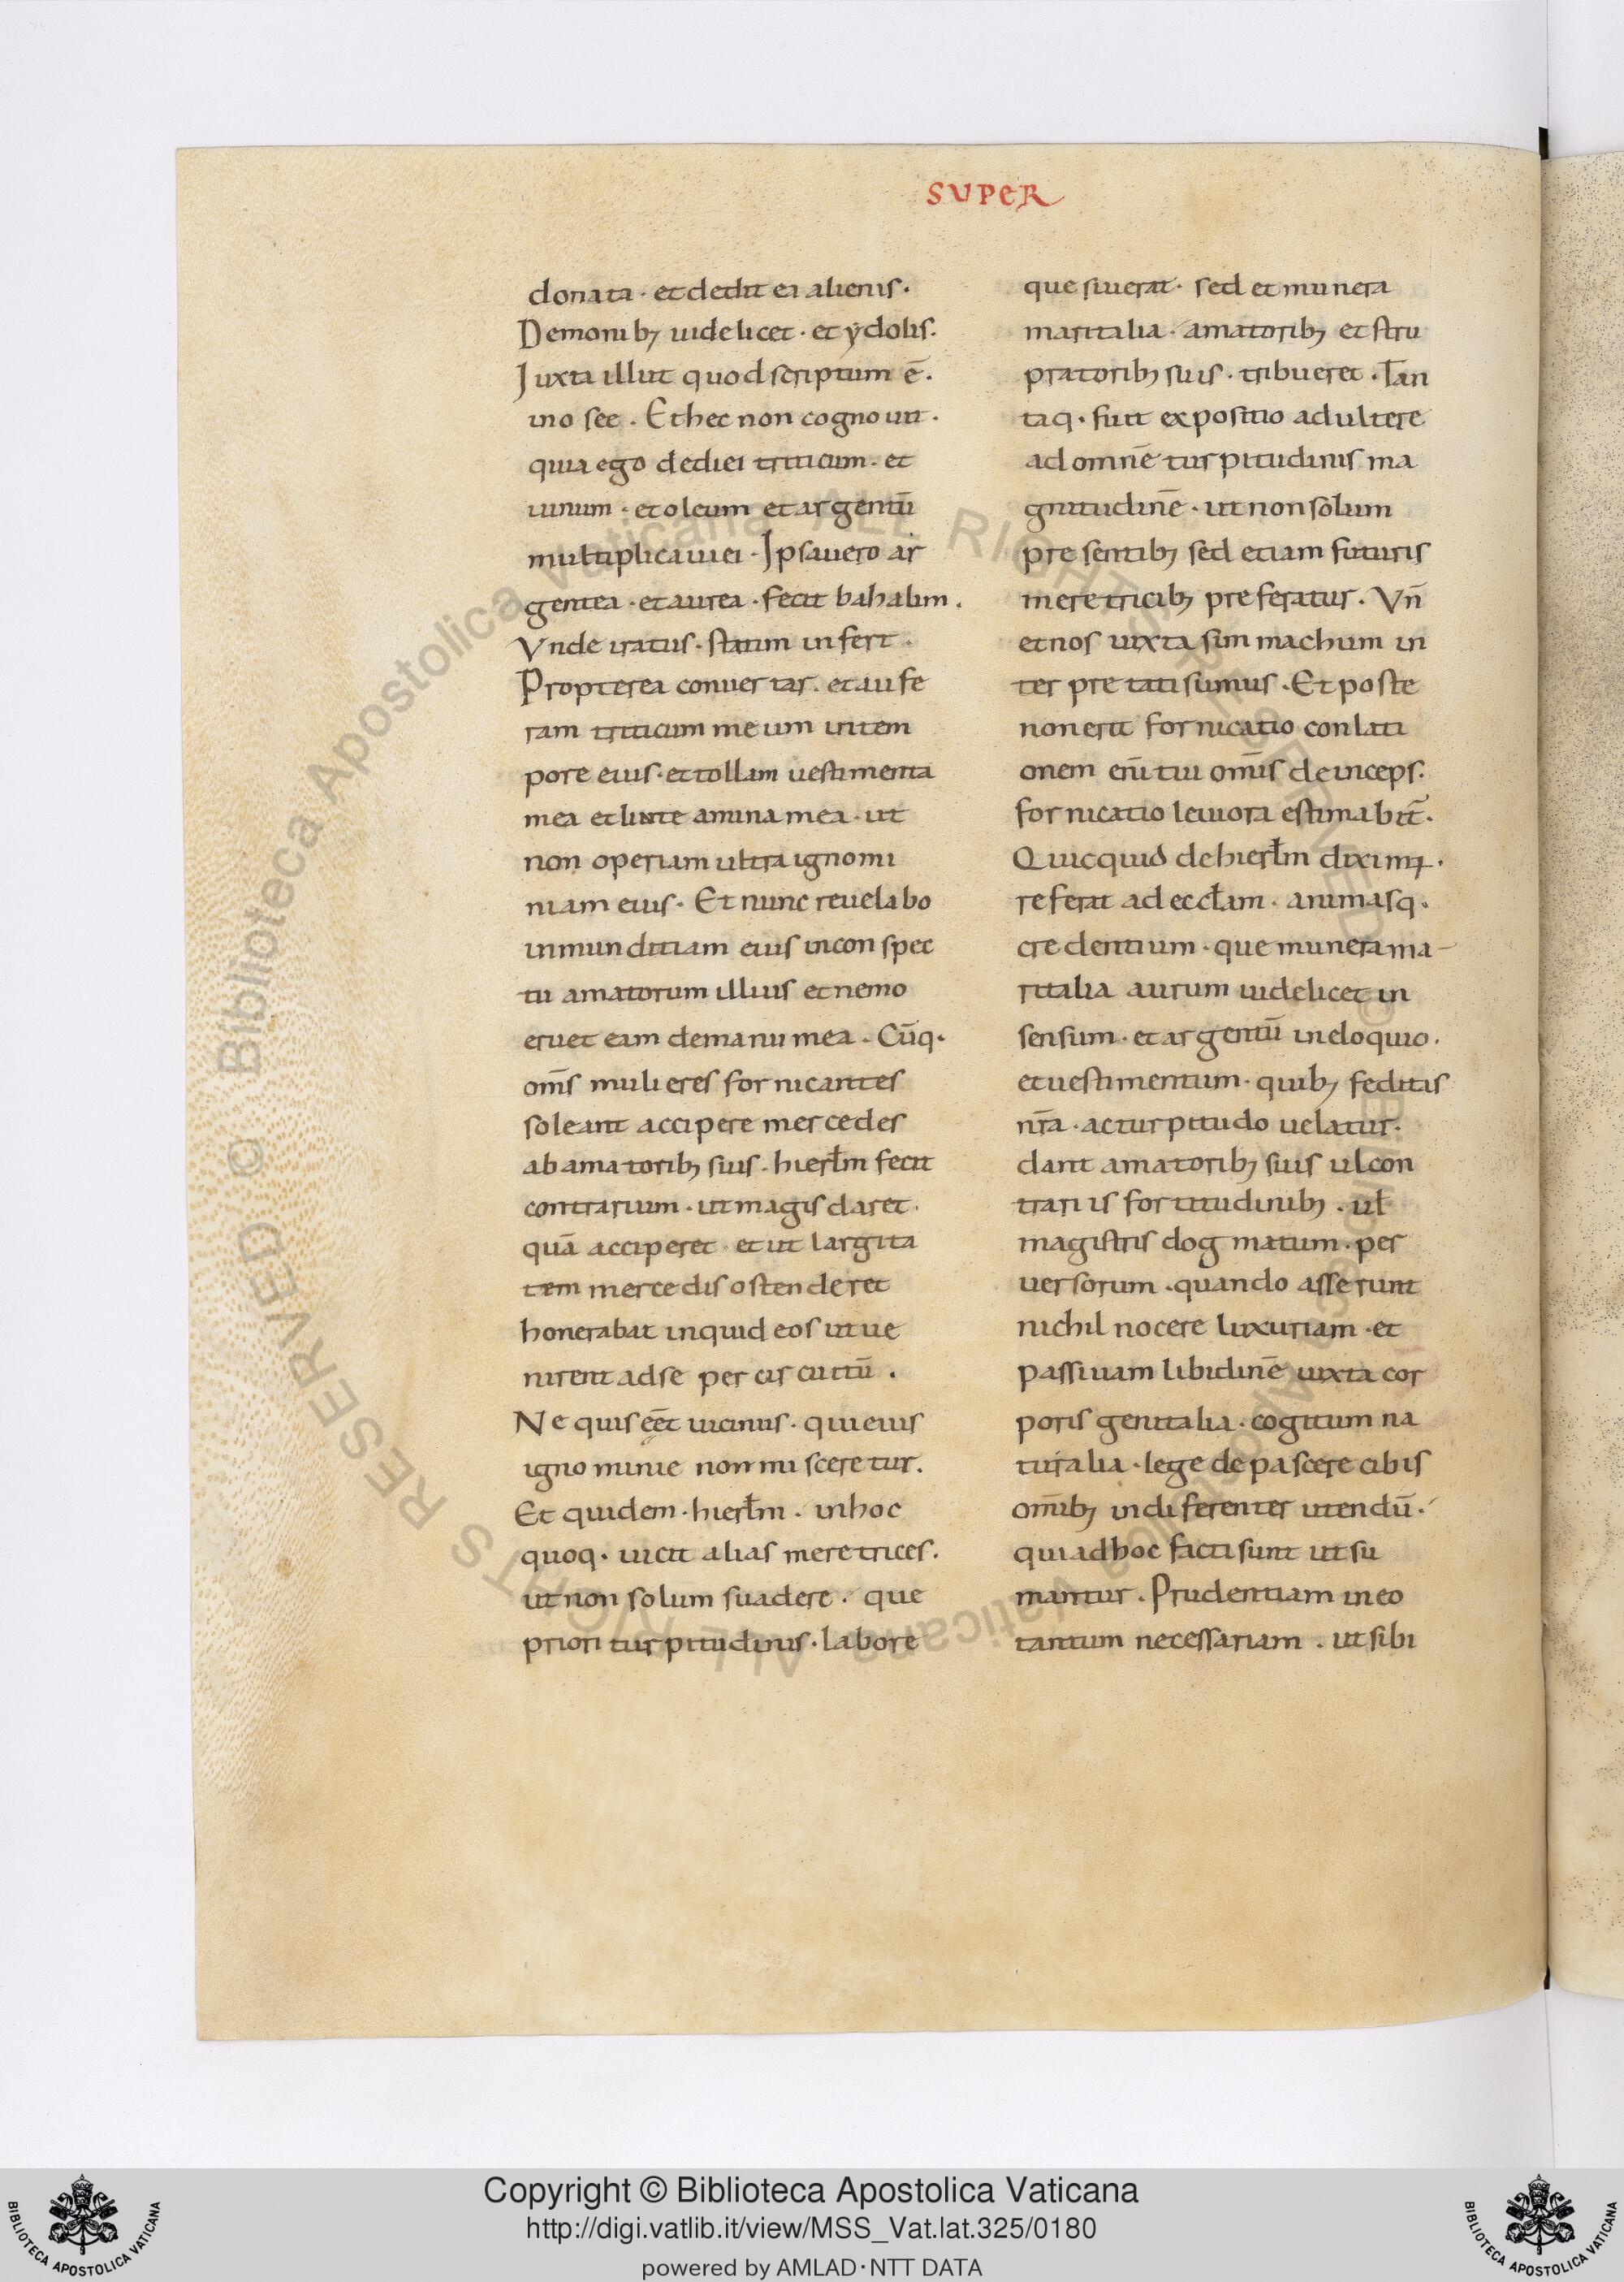 SUPER
donata · et dedit ea alienis ·
Demonibꝫ uidelicet · et ẏdolis ·
Juxta illut quod scriptum ē ·
in osee · Et hec non cognouit ·
quia ego dedi ei triticum · et
uinum · et oleum et argentū
multiplicaui ei · Ipsa uero ar
gentea · et aurea · fecit bahalim ·
Vnde iratus · statim infert ·
Propterea conuertar · et aufe
ram triticum meum in tem
pore eius · et tollam uestimenta
mea et linte amina mea · ut
non operiam ultra ignomi
niam eius · Et nunc reuelabo
inmunditiam eius in conspec
tu amatorum illius et nemo
eruet eam de manu mea · Cūq·
om̄s mulieres fornicantes
soleant accipere mercedes
ab amatoribꝫ suis · hierłm fecit
contrarium · ut magis daret ·
quā acciperet · et ut largita
tem mercedis ostenderet
honerabat inquid eos ut ue
nirent ad se per circuitū ·
Ne quis eēt uicinus · qui eius
ignominie non misceretur ·
Et quidem · hierłm · in hoc
quoq· uicit alias meretrices ·
ut non solum suadere · que
priori turpitudinis · labore
que siuerat · sed et munera
maritalia · amatoribꝫ et stru
pratoribꝫ suis · tribueret · Tan
taq· fuit expositio adultere
ad omnē turpitudinis ma
gnitudinē · ut non solum
presentibꝫ sed etiam futuris
meretricibꝫ preferatur · Vn̄
et nos iuxta simmachum in
terpretati sumus · Et post e
non erit fornicatio conlati
onem eni̅ tui om̄is deinceps ·
fornicatio leuiora estimabit̄ ·
Quicquid de hierłm diximꝰ ·
referat ad eccłam · animasq·
credentium · que munera ma-
ritalia aurum uidelicet in
sensum · et argentū in eloquio ·
et uestimentum · quibꝫ feditas
nr̄a · ac turpitudo uelatur ·
dant amatoribꝫ suis ul con
trariis fortitudinibꝫ · uł
magistris dogmatum · per
uersorum · quando asserunt
nichil nocere luxuriam · et
passiuam libidinē iuxta cor
poris genitalia · cogitum na
turalia · lege de pascere cibis
om̄ibꝫ indiferenter utendū ·
qui ad hoc facti sunt ut su
mantur · Prudentiam in eo
tantum necessariam · ut sibi
Copyright © Biblioteca Apostolica Vaticana
http://digi.vatlib.it/view/MSS_Vat.lat.325/0180
powered by AMLAD·NTT DATA
BIBLIOTECA APOSTOLICA VATICANA
BIBLIOTECA APOSTOLICA VATICANA